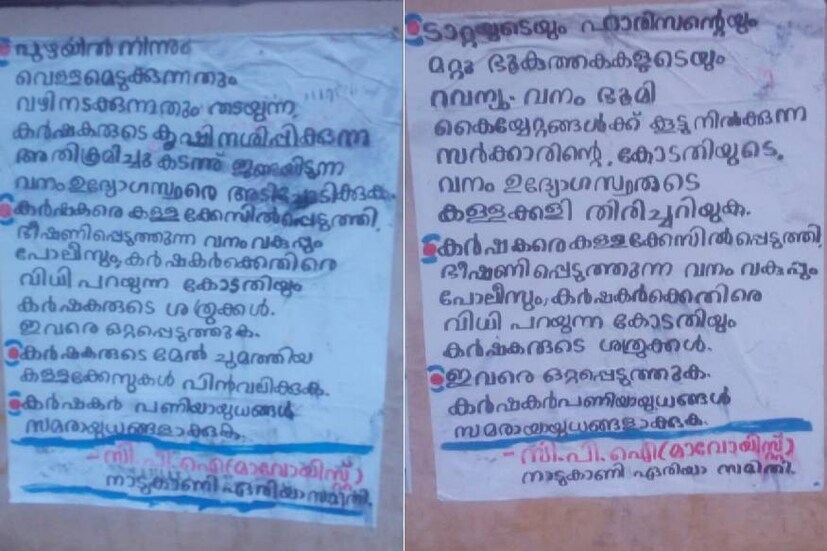 പുഴയിൽ നിന്നും
വെള്ളമെടുക്കുന്നതും
വഴി നടക്കുന്നതും തടയുന്ന,
കർഷകരുടെ കൃഷി നശിപ്പിക്കുന്ന
അതിക്രമിച്ചു കടന്ന്
വനം ഉദ്യോഗസ്ഥരെ അടിച്ചോടിക്കുക.
കർഷകരെ കള്ളക്കേസിൽപ്പെടുത്തി,
ഭീഷണിപ്പെടുത്തുന്ന വനം വകുപ്പും
പോലീസും, കർഷകർക്കെതിരെ
വിധി പറയുന്ന കോടതിയും
കർഷകരുടെ ശത്രുക്കൾ.
ഇവരെ ഒറ്റപ്പെടുത്തുക.
കർഷകരുടെ മേൽ ചുമത്തിയ
കള്ളക്കേസുകൾ പിൻവലിക്കുക.
കർഷകർ പണിയായുധങ്ങൾ
സമരായുധങ്ങളാക്കുക.
- സി.പി.ഐ (മാവോയിസ്റ്റ്)
നാടുകാണി ഏരിയാ സമിതി.
ടാറ്റയുടെയും ഹാരിസന്റെയും
മറ്റു ഭൂകുത്തകകളുടെയും
റവന്യൂ- വനം ഭൂമി
കൈയ്യേറ്റങ്ങൾക്ക് കൂട്ടുനിൽക്കുന്ന
സർക്കാരിന്റെ, കോടതിയുടെ,
വനം ഉദ്യോഗസ്ഥരുടെ
കള്ളക്കളി തിരിച്ചറിയുക.
കർഷകരെ കള്ളക്കേസിൽപ്പെടുത്തി,
ഭീഷണിപ്പെടുത്തുന്ന വനം വകുപ്പും
പോലീസും, കർഷകർക്കെതിരെ
വിധി പറയുന്ന കോടതിയും
കർഷകരുടെ ശത്രുക്കൾ.
ഇവരെ ഒറ്റപ്പെടുത്തുക.
കർഷകർ പണിയായുധങ്ങൾ
സമരായുധങ്ങളാക്കുക.
- സി.പി.ഐ (മാവോയിസ്റ്റ്)
നാടുകാണി ഏരിയാ സമിതി.